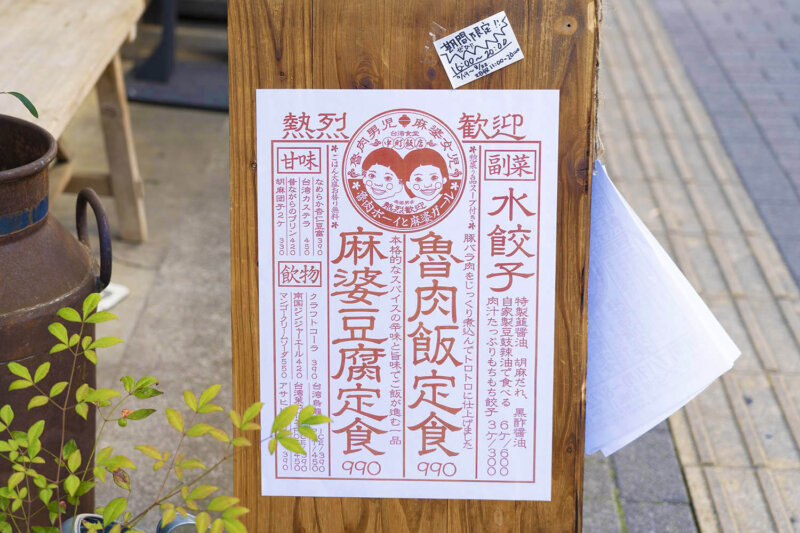 期間限定!!
16:00~20:00
熱烈
歓迎
魯肉男児
麻婆女児
台湾食堂
仲町飯店
熱烈歓迎
★魯肉ボーイと麻婆ガール★
副菜
水餃子
特製韮醤油、胡麻だれ、黒酢醤油
自家製豆鼓辣油で食べる
肉汁たっぷりもちもち餃子
6ケ/600
3ケ/300
豚バラ肉をじっくり煮込んでトロトロに仕上げました
魯肉飯定食
990
本格的なスパイスの辛味と旨味でご飯が進む一品
麻婆豆腐定食
990
＊ごはん大盛お替り無料＊
甘味
なめらか杏仁豆腐 390
台湾カステラ 450
昔ながらのプリン 420
胡麻団子2ケ 330
飲物
クラフトコーラ 390
南国ジンジャーエール 420
マンゴークリームソーダ 550